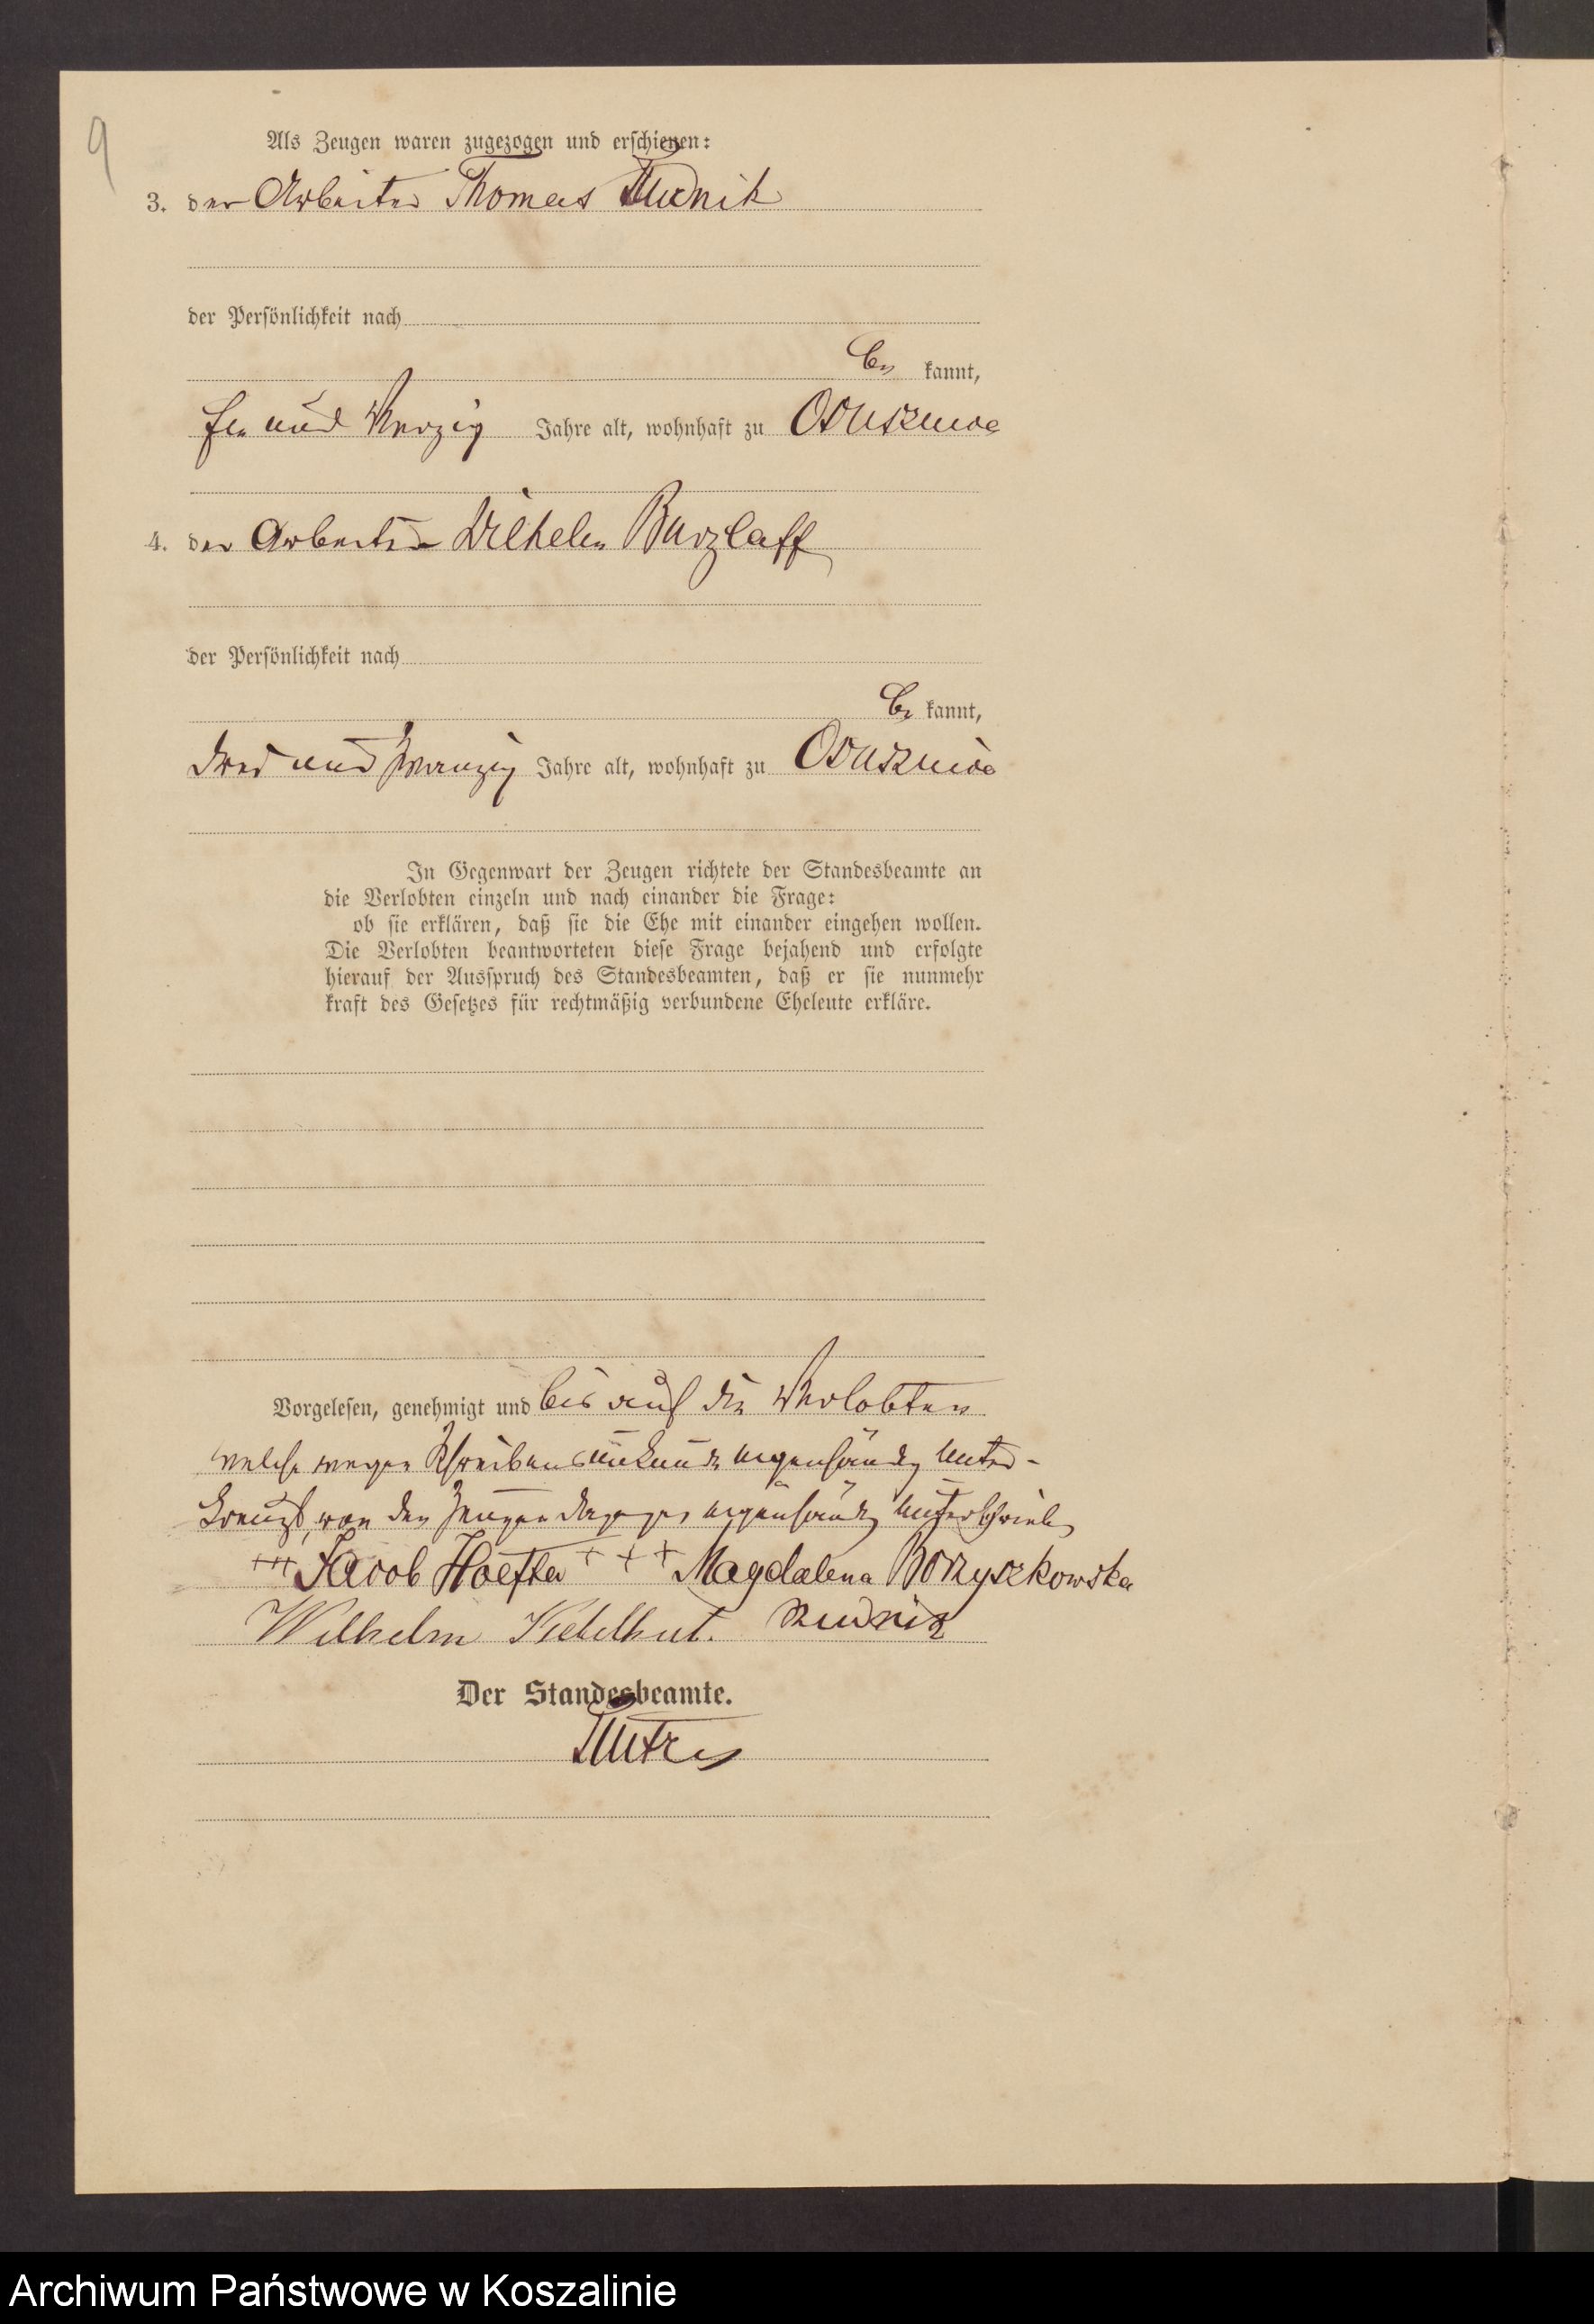 9
Als Zeugen waren zugezogen und erschienen:
3. der Arbeiter Thomas Rudnik
der Persönlichkeit nach
be kannt,
und vierzig Jahre alt, wohnhaft zu Ossusznica
4. der Arbeiter Wilhelm Burzlaff
der Persönlichkeit nach
be kannt,
drei und zwanzig Jahre alt, wohnhaft zu Ossusznica
In Gegenwart der Zeugen richtete der Standesbeamte an
die Verlobten einzeln und nach einander die Frage:
ob sie erklären, daß sie die Ehe mit einander eingehen wollen.
Die Verlobten beantworteten diese Frage bejahend und erfolgte
hierauf der Ausspruch des Standesbeamten, daß er sie nunmehr
kraft des Gesetzes für rechtmäßig verbundene Eheleute erkläre.
Vorgelesen, genehmigt und bis auf die Verlobten
welche wegen Schreibensunkunde eigenhändig unter-
kreuzt, von den Zeugen dagegen eigenhändig unterschrieben
+++ Jacob Hoefta +++ Magdalena Borzyszkowska
Wilhelm Rudnik
Der Standesbeamte.
Archiwum Państwowe w Koszalinie